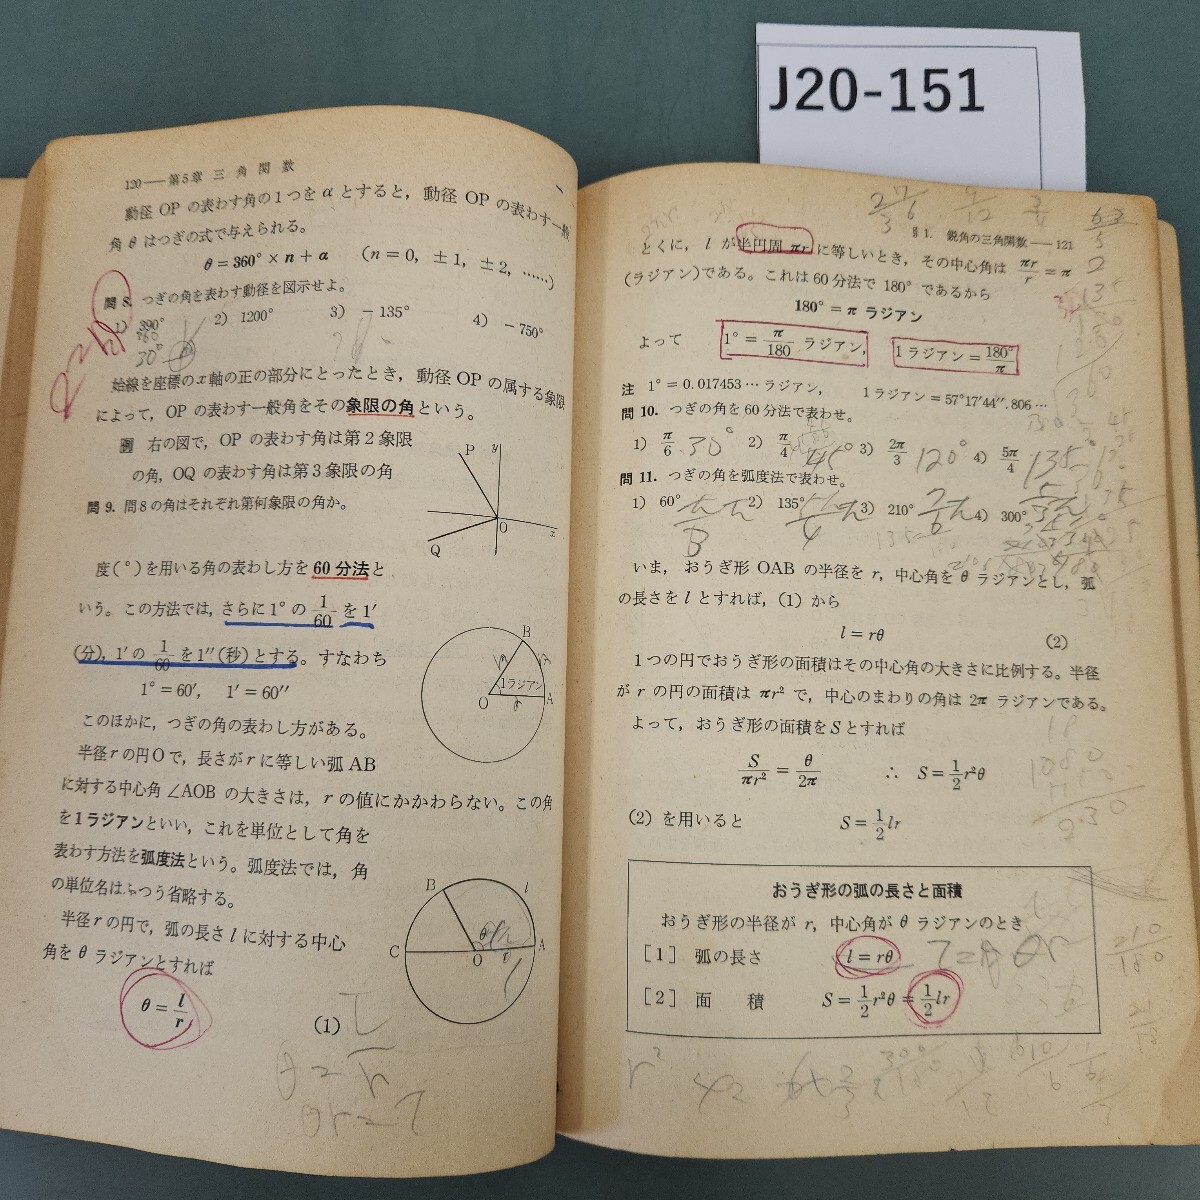 J20-151
120——第5章 三 角 関 数
動径 OP の表わす角の1つを α とすると，動径 OP の表わす一般
角 θ はつぎの式で与えられる。
θ＝360°×n＋α　(n＝0, ±1, ±2, ……)
問 8. つぎの角を表わす動径を図示せよ。
1) 390°　2) 1200°　3) －135°　4) －750°
30°
始線を座標のx軸の正の部分にとったとき，動径 OP の属する象限
によって，OP の表わす一般角をその象限の角という。
例 右の図で，OP の表わす角は第2象限
の角，OQ の表わす角は第3象限の角
問 9. 問8の角はそれぞれ第何象限の角か。
P
y
O
x
Q
度(°)を用いる角の表わし方を60分法と
いう。この方法では，さらに1°の 1/60 を1′
(分)，1′の 1/60 を1″(秒)とする。すなわち
1°＝60′, 1′＝60″
このほかに，つぎの角の表わし方がある。
B
1ラジアン
O
A
半径rの円Oで，長さがrに等しい弧AB
に対する中心角 ∠AOB の大きさは，r の値にかかわらない。この角
を1ラジアンといい，これを単位として角を
表わす方法を弧度法という。弧度法では，角
の単位名はふつう省略する。
半径rの円で，弧の長さlに対する中心
角をθ ラジアンとすれば
θ＝l/r　(1)
B
l
θ
C
O
A
r
θ＝l/r
θr＝l
§1. 鋭角の三角関数——121
とくに，l が半円周 πr に等しいとき，その中心角は πr/r＝π
(ラジアン)である。これは60分法で180°であるから
180°＝π ラジアン
よって　1°＝π/180 ラジアン，　1ラジアン＝180°/π
注 1°＝0.017453…ラジアン，　1ラジアン＝57°17′44″.806…
問 10. つぎの角を60分法で表わせ。
1) π/6 30°　2) π/4 45°　3) 2π/3 120°　4) 5π/4 135°
問 11. つぎの角を弧度法で表わせ。
1) 60°　2) 135°　3) 210° 7/6π　4) 300°
いま，おうぎ形OABの半径を r，中心角を θ ラジアンとし，弧
の長さを l とすれば，(1)から
l＝rθ　(2)
1つの円でおうぎ形の面積はその中心角の大きさに比例する。半径
が r の円の面積は πr² で，中心のまわりの角は 2π ラジアンである。
よって，おうぎ形の面積をSとすれば
S/πr²＝θ/2π　∴ S＝1/2r²θ
(2)を用いると　S＝1/2lr
おうぎ形の弧の長さと面積
おうぎ形の半径が r，中心角が θ ラジアンのとき
[1] 弧の長さ　l＝rθ
[2] 面 積　S＝1/2r²θ＝1/2lr
210/180
r²